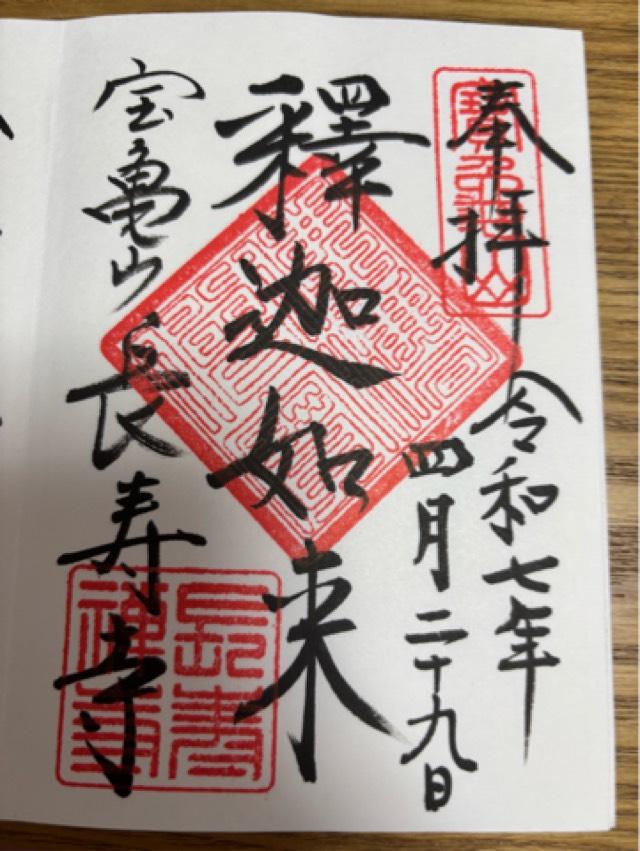 奉拝
令和七年
四月二十九日
釋迦如来
宝亀山長寿寺
長壽禅寺